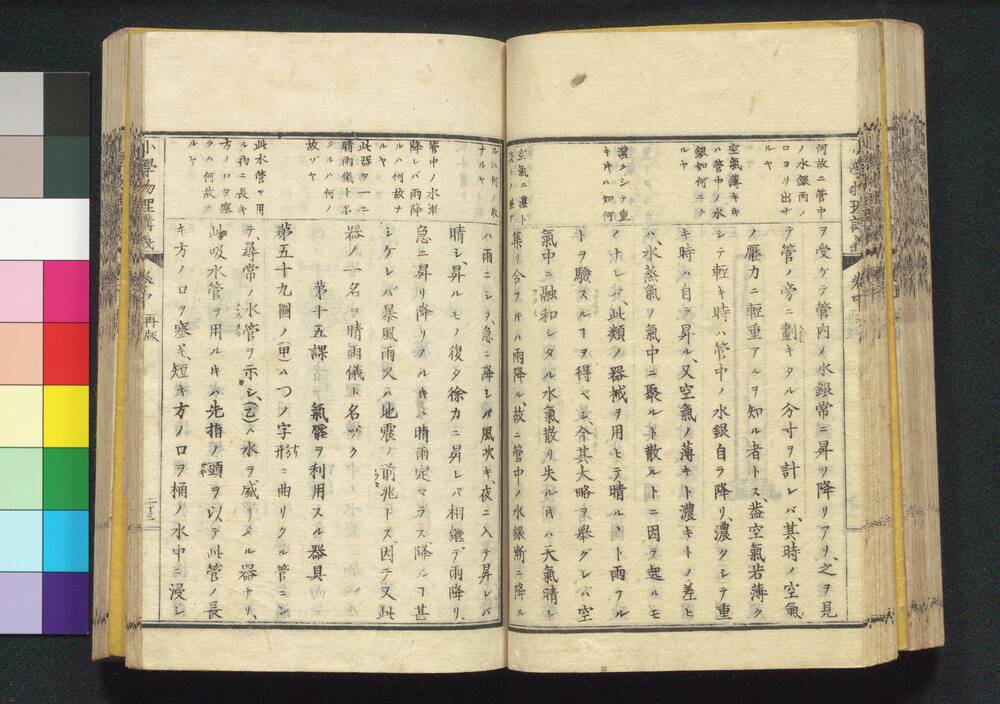 何故ニ管中
ノ水銀丙ノ
口ヨリ出サ
ルヤ
空氣薄キキ
ハ管中ノ水
銀如何ニナ
ルヤ
濃クシテ重
キキハ如何
空氣ニ濃ト
ヲ受ケテ管内ノ水銀常ニ昇リ降リアリ、之ヲ見
テ管ノ旁ニ劃キタル分寸ヲ計レバ、其時ノ空氣
ノ壓力ニ輕重アルヲ知ル者トス、蓋空氣若薄ク
シテ輕キ時ハ管中ノ水銀自ラ降リ、濃クシテ重
キ時ハ自ラ昇ル、又空氣ノ薄キト濃キトノ差ヒ
ハ、水蒸氣ヲ氣中ニ聚ルト散ルトニ因テ起ルモ
ノナレバ、此類ノ器械ヲ用ヒテ晴ルヽト雨フル
トヲ驗スルヿヲ得ベシ、今其大略ヲ擧グレバ空
氣中ニ融和シタル水氣散リ失ルキハ天氣晴レ
集リ合フキハ雨降ル、故ニ管中ノ水銀漸ニ降ル
小學物理講義 卷中
ルハ何ノ故
ナルヤ
管中ノ水漸
降レバ雨降
ルハ何故ナ
ルヤ
此器ヲ一ニ
晴雨儀ト名
シルハ何ノ
故ゾ
此水管ヲ用
ル物ニ長キ
方ノ口ヲ塞
クハ何故ナ
ルヤ
ハ雨ニシテ、急ニ降レバ風吹キ、夜ニ入テ昇レバ
晴シ、昇ルモノ復タ徐カニ昇レバ相繼デ雨降リ、
急ニ昇リ降リスルキハ晴雨定マラス降ルヿ甚
シケレバ暴風雨又ハ地震ノ前兆トス、因テ又此
器ノ一名ヲ晴雨儀ト名ヅク
第十五課 氣壓ヲ利用スル器具
第五十九圖ノ(甲)ハつノ字形ニ曲リクル管ニシ
テ、尋常ノ水管ヲ示シ、(乙)ハ水ヲ盛リタル器ナリ、
此吸水管ヲ用ルキハ先指ノ頭ヲ以テ此管ノ長
キ方ノ口ヲ塞ギ、短キ方ノ口ヲ桶ノ水中ニ浸シ
小學物理講義 卷中 再版 二十三